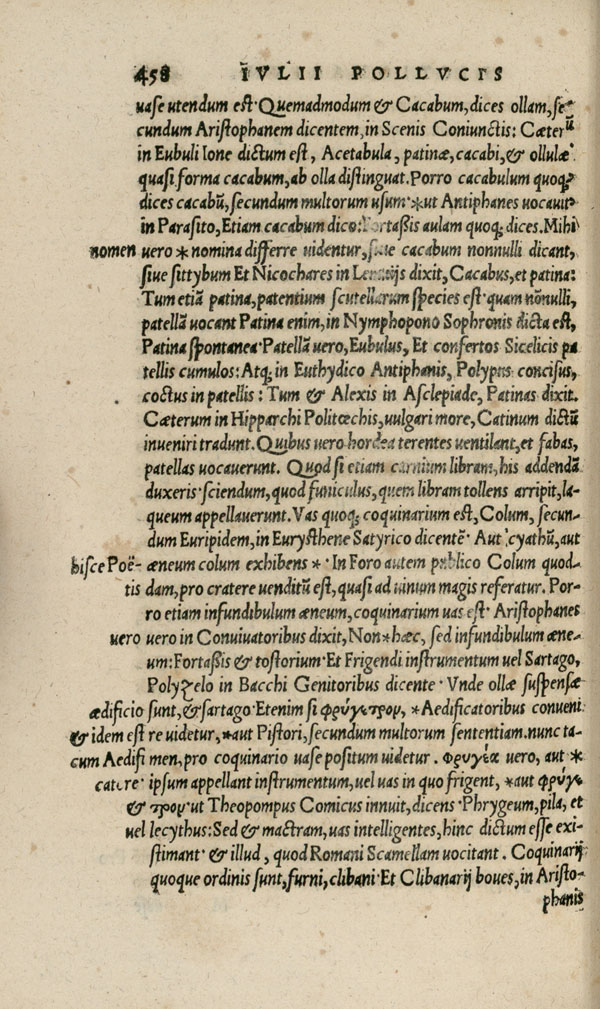 458 IVLII POLLVCIS
uase utendum est· Quemadmodum & Cacabum, dices ollam, se-
cundum Aristophanem dicentem, in Scenis Coniunctis: Cæterũ
in Eubuli Ione dictum est, Acetabula, patinæ, cacabi, & ollulæ·
quasi forma cacabum, ab olla distinguat. Porro cacabulum quoq;
dices cacabũ, secundum multorum usum· *ut Antiphanes uocauit
in Parasito, Etiam cacabum dico: Fortassis aulam quoq; dices. Mihi
nomen uero * nomina differre uidentur, siue cacabum nonnulli dicant,
siue sittybum Et Nicochares in dixit, Cacabus, et patina:
Tum etiã patina, patentium scutellarum species est· quam nõnulli,
patellã uocant Patina enim, in Nymphopono Sophronis dicta est,
Patina spontanea· Patellã uero, Eubulus, Et confertos Sicelicis pa
tellis cumulos: Atq; in Euthydico Antiphanis, Polypus concisus,
coctus in patellis: Tum & Alexis in Asclepiade, Patinas dixit.
Cæterum in Hipparchi Politœchis, uulgari more, Catinum dictũ
inueniri tradunt. Quibus uero hordea terentes uentilant, et fabas,
patellas uocauerunt. Quod si etiam carnium libram, his addendã
duxeris· sciendum, quod funiculus, quem libram tollens arripit, la-
queum appellauerunt. Vas quoq; coquinarium est, Colum, secun-
dum Euripidem, in Eurysthene Satyrico dicentẽ· Aut cyathũ, aut
hisce Poë- æneum colum exhibens * · In Foro autem publico Colum quod-
tis dam, pro cratere uenditũ est, quasi ad uinum magis referatur. Por-
ro etiam infundibulum æneum, coquinarium uas est· Aristophanes
uero uero in Conuiuatoribus dixit, Non * hæc, sed infundibulum æne-
um: Fortassis & tostorium· Et Frigendi instrumentum uel Sartago,
Polyzelo in Bacchi Genitoribus dicente· Vnde ollæ suspensæ
ædificio sunt, & sartago· Etenim si φρύγετρον, *Aedificatoribus conueni
& idem est re uidetur, *aut Pistori, secundum multorum sententiam. nunc ta-
cum Aedifi men, pro coquinario uase positum uidetur. Φρυγέα uero, aut *
catore· ipsum appellant instrumentum, uel uas in quo frigent, *aut φρύγε
& τρον· ut Theopompus Comicus innuit, dicens· Phrygeum, pila, et
uel lecythus: Sed & mactram, uas intelligentes, hinc dictum esse exi-
stimant· & illud, quod Romani Scamellam uocitant. Coquinarij
quoque ordinis sunt, furni, clibani· Et Clibanarij boues, in Aristo-
phanis